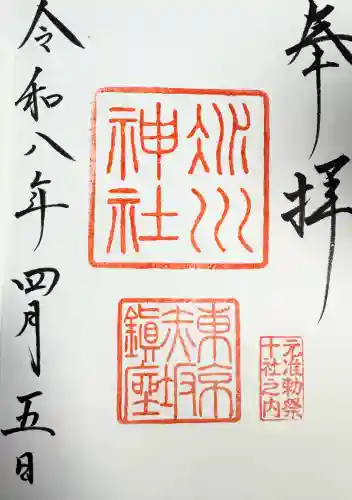 奉拝
氷川神社
東京赤坂鎮座
元准勅祭十社之内
令和八年四月五日